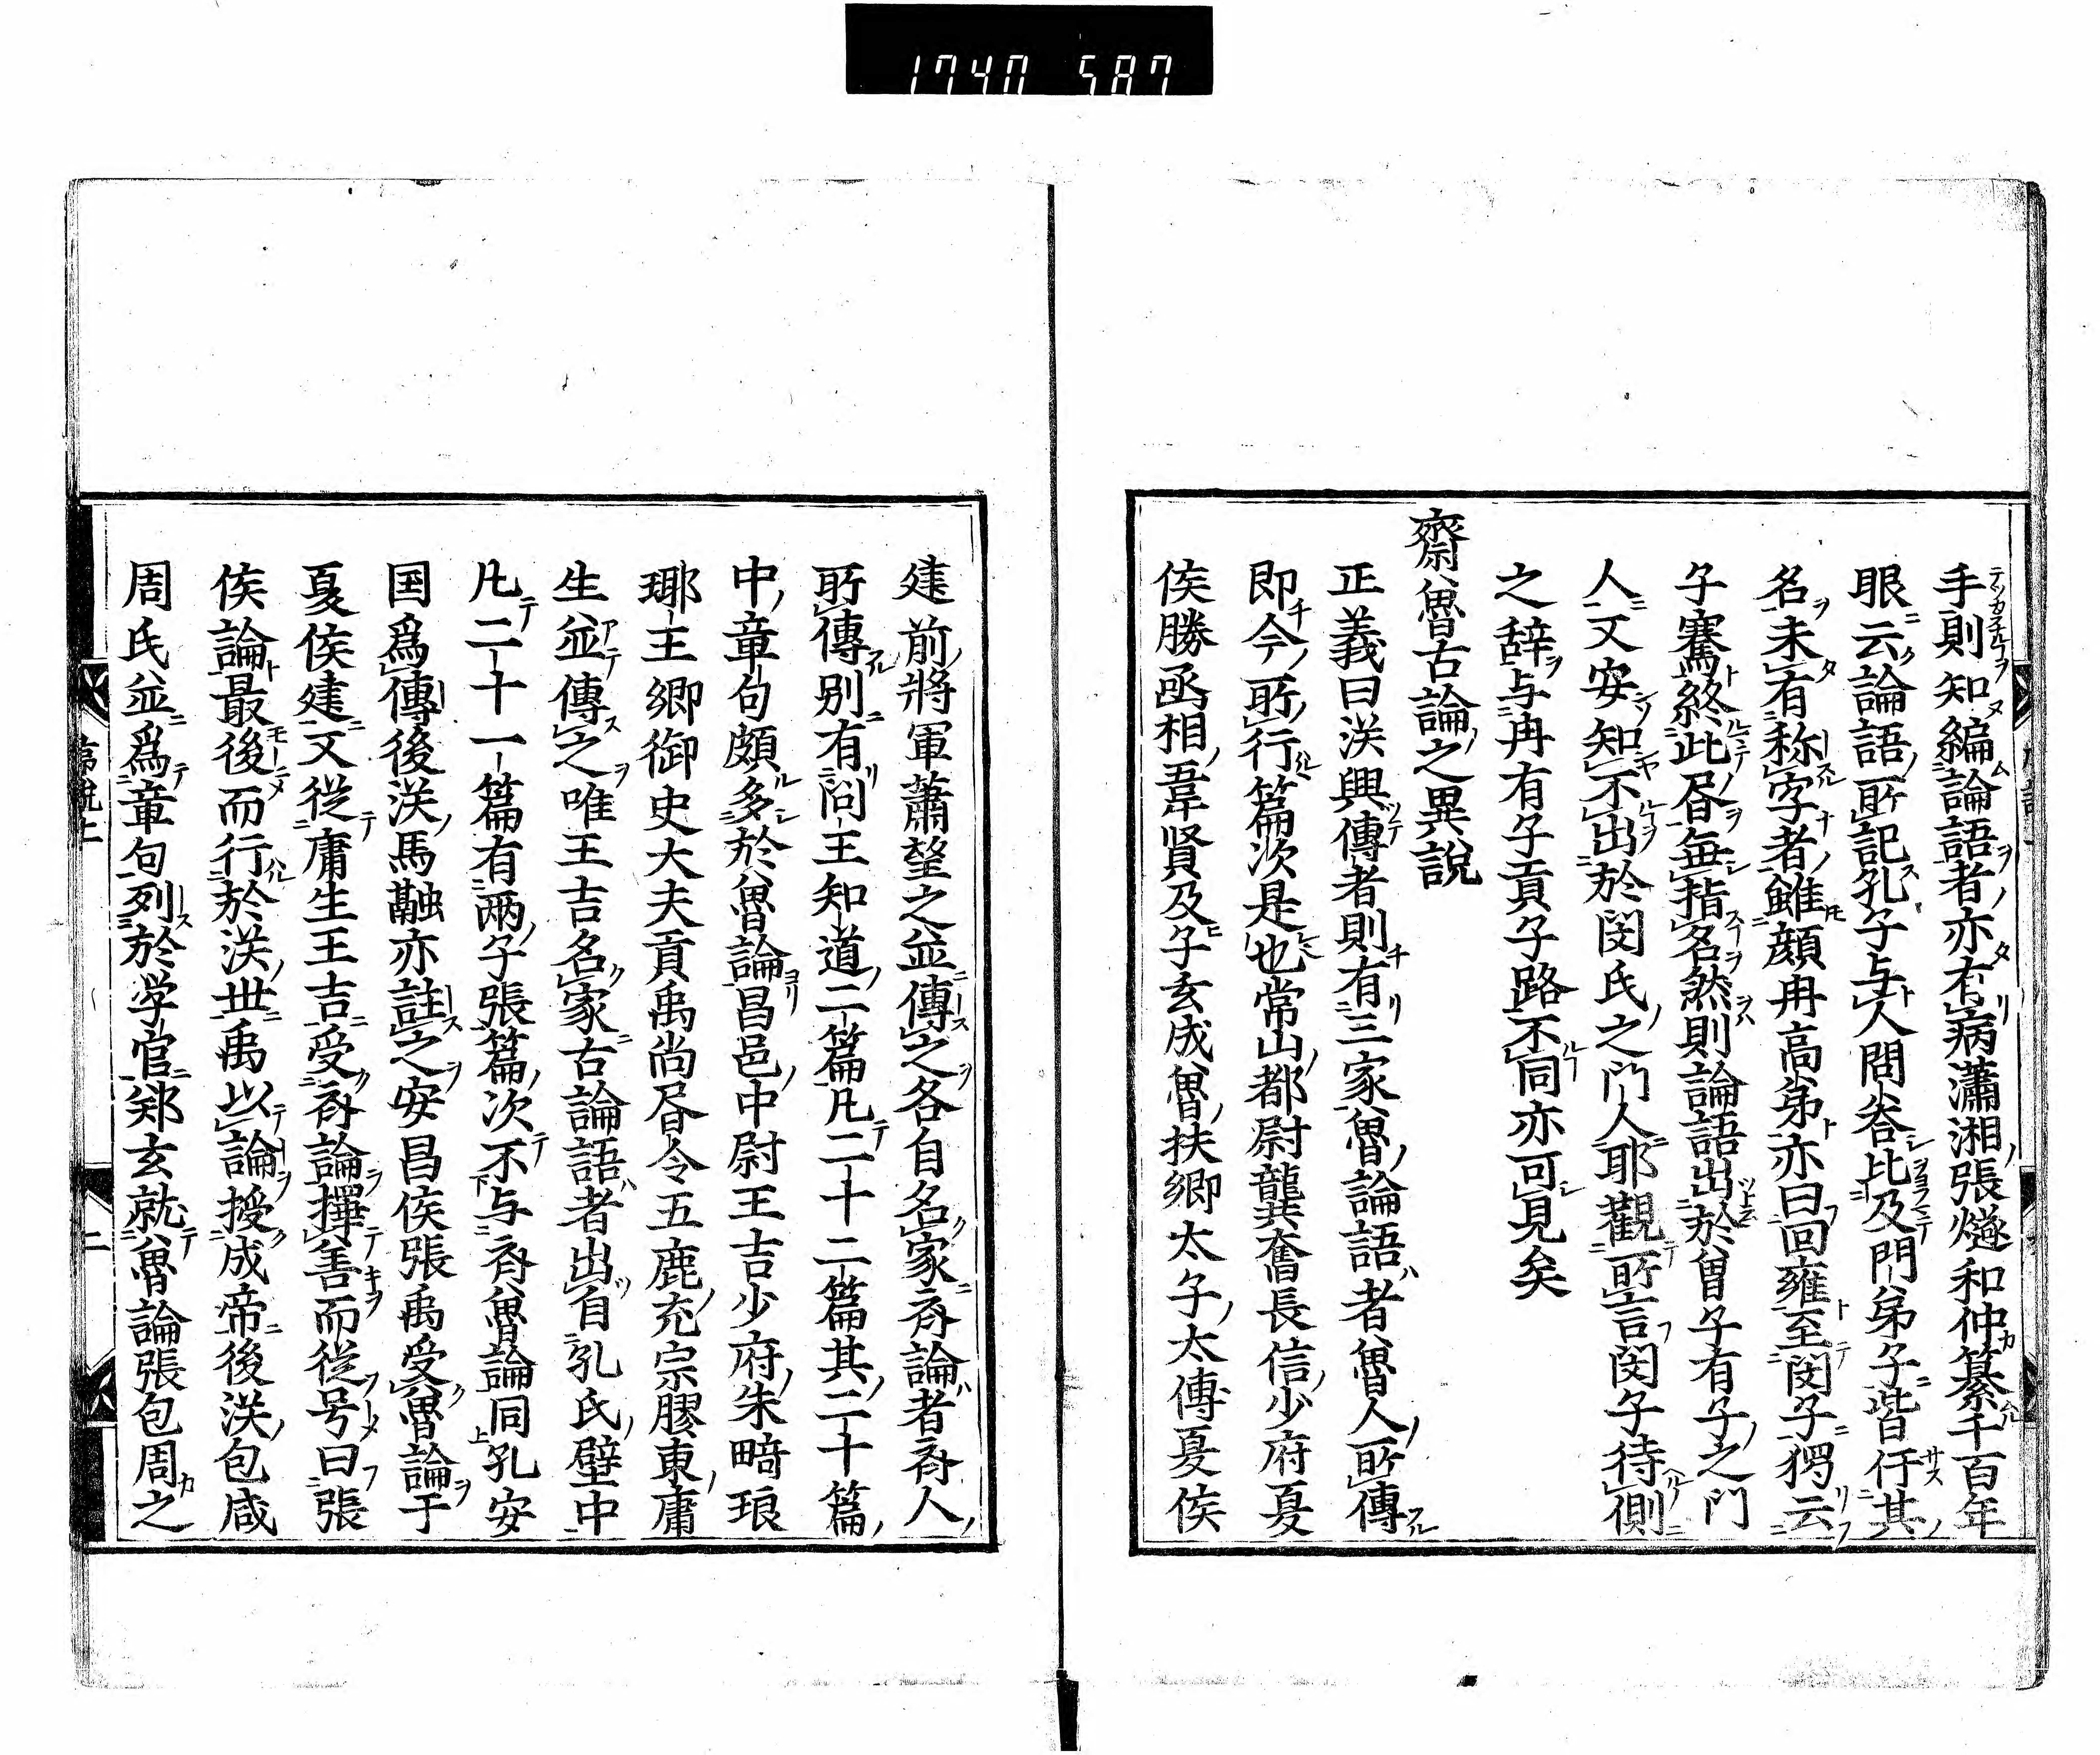 1740 587
手則知編論語者亦有病瀟湘張燧和仲纂千百年
眼云論語所記孔子与人問答比及門弟子皆仟其
名未有称字者雖顔冉高弟亦曰回雍至閔子獨云
子騫終此昏無指名然則論語出於曾子有子之門
人又安知不出於閔氏之門人耶觀所言閔子待側
之辞与冉有子貢子路不同亦可見矣
齋魯古論之異説
正義曰漢興傳者則有三家魯論語者魯人所傳
即今所行篇次是也常山都尉龔奮長信少府夏
侯勝丞相韋賢及子玄成魯扶卿太子太傅夏侯
建前將軍蕭望之並傳之各自名家斉論者斉人
所傳別有問王知道二篇凡二十二篇其二十篇
中章句頗多於魯論昌邑中尉王吉少府朱畸琅
瑘王卿御史大夫貢禹尚昏令五鹿充宗膠東庸
生並傳之唯王吉名家古論語者出自孔氏壁中
凡二十一篇有兩子張篇次不与斉魯論同孔安
国爲傳後漢馬融亦註之安昌侯張禹受魯論于
夏侯建又從庸生王吉受斉論擇善而從号曰張
侯論最後而行於漢世禹以論授成帝後漢包咸
周氏並爲章句列於学官鄭玄就魯論張包周之
二